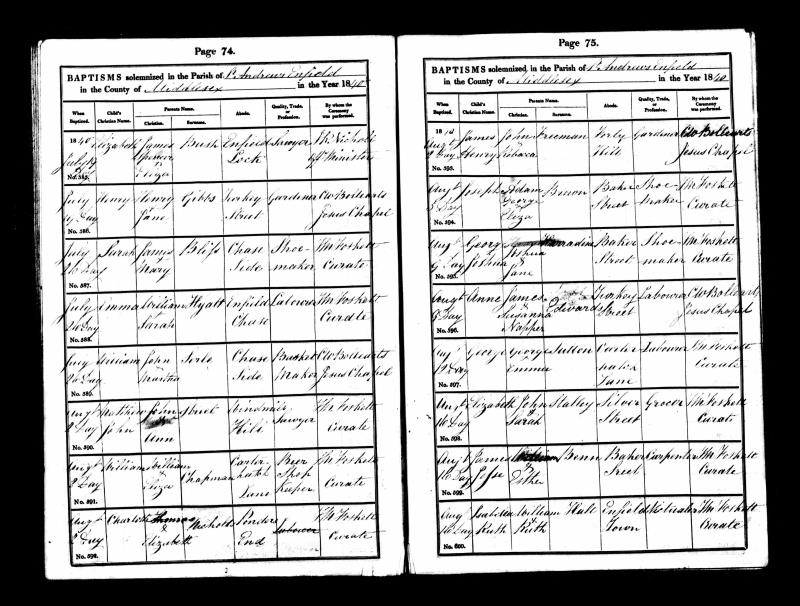 Page 74.
BAPTISMS solemnized in the Parish of St. Andrews Enfield
in the County of Middlesex in the Year 1840
When Baptized. Child's Christian Name. Parents Name. Christian. Surname. Abode. Quality, Trade, or Profession. By whom the Ceremony was performed.
1840 Elizabeth James Bush Enfield Sawyer
July Spencer & Lock Minister
Eliza
No. 585.
July Henry Henry Gibbs Turkey Gardener CW Bollaerts
Day Jane Street Jesus Chapel
No. 586.
July Sarah James Bliss Chase Shoe- JM Foskett
Day Mary Side maker Curate
No. 587.
July Emma William Hyatt Enfield Labourer JM Foskett
26 Day Sarah Chase Curate
No. 588.
July William John Chase Basket CW Bollaerts
26 Day Martha Side Maker Jesus Chapel
No. 589.
Augt Matthew John Street Windmill Sawyer JM Foskett
2 Day John & Ann Hill Curate
No. 590.
Augt William William Chapman Carter Beer JM Foskett
2 Day & Hatch Shop Curate
Eliza Lane Keeper
No. 591.
Augt Charlotte Thomas Nicholls Ponders Labourer JM Foskett
Day & Elizabeth End Curate
No. 592.
Page 75.
BAPTISMS solemnized in the Parish of St. Andrews Enfield
in the County of Middlesex in the Year 1840
When Baptized. Child's Christian Name. Parents Name. Christian. Surname. Abode. Quality, Trade, or Profession. By whom the Ceremony was performed.
1840 James John Freeman Forty Gardener CW Bollaerts
Augt 2 Day Henry Rebecca Hill Jesus Chapel
No. 593.
Augt Joseph Adam Baker Shoe- JM Foskett
Day George Eliza Street maker Curate
No. 594.
Augt George Joshua Baker Shoe- JM Foskett
9 Day Joshua & Jane Street maker Curate
No. 595.
Augt Anne James Edwards Turkey Labourer CW Bollaerts
9 Day Susanna Street Jesus Chapel
Napper
No. 596.
Augt George George Sutton Carter Labourer JM Foskett
Day Emma hatch Curate
Lane
No. 597.
Augt Elizabeth John Stalley Silver Grocer JM Foskett
16 Day Sarah Street Curate
No. 598.
Augt James William Benn Baker Carpenter JM Foskett
16 Day Jesse & Esther Street Curate
No. 599.
Augt Isabella William Hall Enfield JM Foskett
16 Day Ruth & Ruth Town Curate
No. 600.